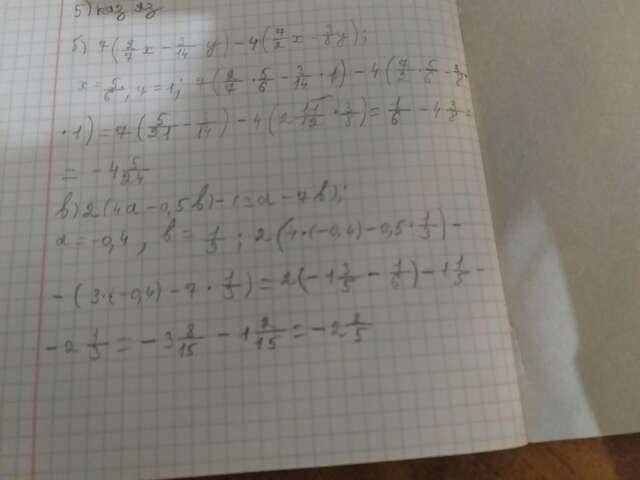 5) каз яз
б) 7(2/7 x - 3/14 y) - 4(7/2 x - 3/8 y);
x = 5/6, y = 1; 7(2/7 · 5/6 - 3/14 · 1) - 4(7/2 · 5/6 - 3/8 ·
· 1) = 7(5/21 - 3/14) - 4(2 11/12 · 3/8) = 1/6 - 4 3/8 =
= - 4 5/24
в) 2(4a - 0,5b) - (3a - 7b);
a = -0,4, b = 1/3; 2(4·(-0,4) - 0,5 · 1/3) -
- (3·(-0,4) - 7 · 1/3) = 2(-1 3/5 - 1/6) - 1 1/5 -
- 2 1/3 = - 3 8/15 - 1 2/15 = - 2 2/5